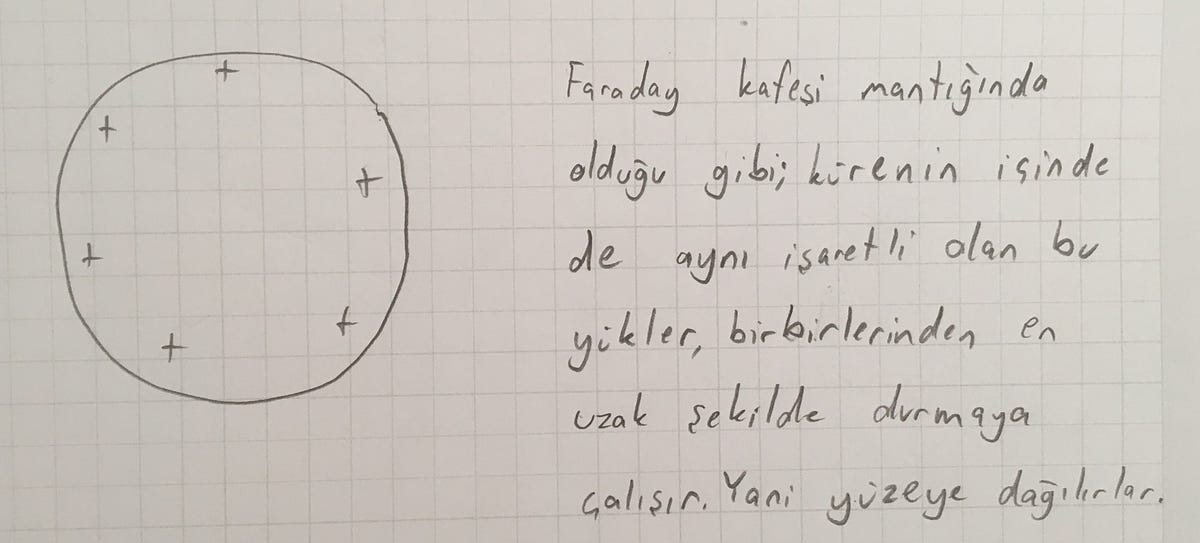 Faraday kafesi mantığında
olduğu gibi; kürenin içinde
de aynı işaretli olan bu
yükler, birbirlerinden en
uzak şekilde durmaya
çalışır. Yani yüzeye dağılırlar.
+
+
+
+
+
+